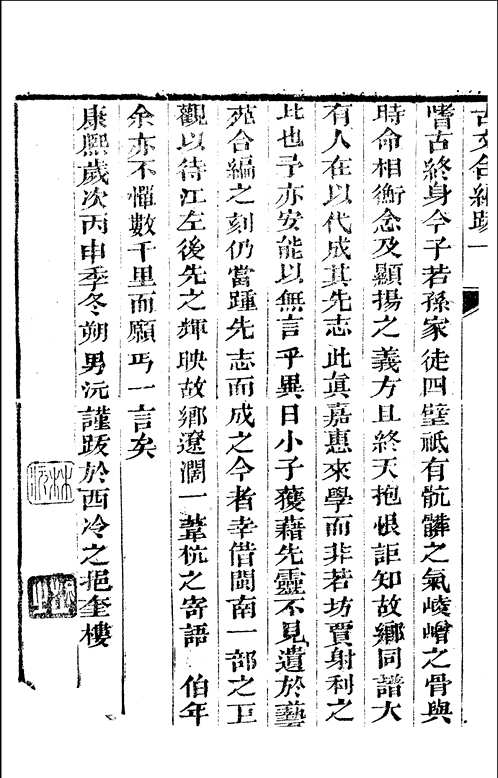 古文合編跋一
嗜古終身今子若孫家徒四壁祇有骯髒之氣崚嶒之骨與
時命相衡念及顯揚之義方且終天抱恨詎知故鄉同譜大
有人在以代成其先志此眞嘉惠來學而非若坊賈射利之
比也予亦安能以無言乎異日小子獲藉先靈不見遺於藝
苑合編之刻仍當踵先志而成之今者幸借閩南一部之巨
觀以待江左後先之輝映故鄉遼濶一葦杭之寄語 伯年
余亦不憚數千里而願丐一言矣
康熙歲次丙申季冬朔男沅謹跋於西冷之挹奎樓